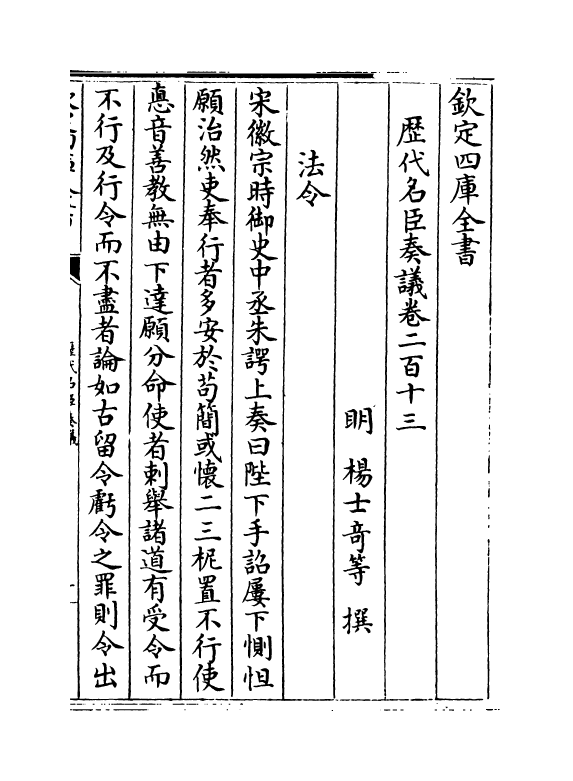 欽定四庫全書
歴代名臣奏議卷二百十三
明 楊士奇等 撰
法令
宋徽宗時御史中丞朱諤上奏曰陛下手詔屢下惻怛
願治然吏奉行者多安於苟簡或懷二三柅置不行使
悳音善教無由下達願分命使者刺舉諸道有受令而
不行及行令而不盡者論如古留令虧令之罪則令出
歴代名臣奏議